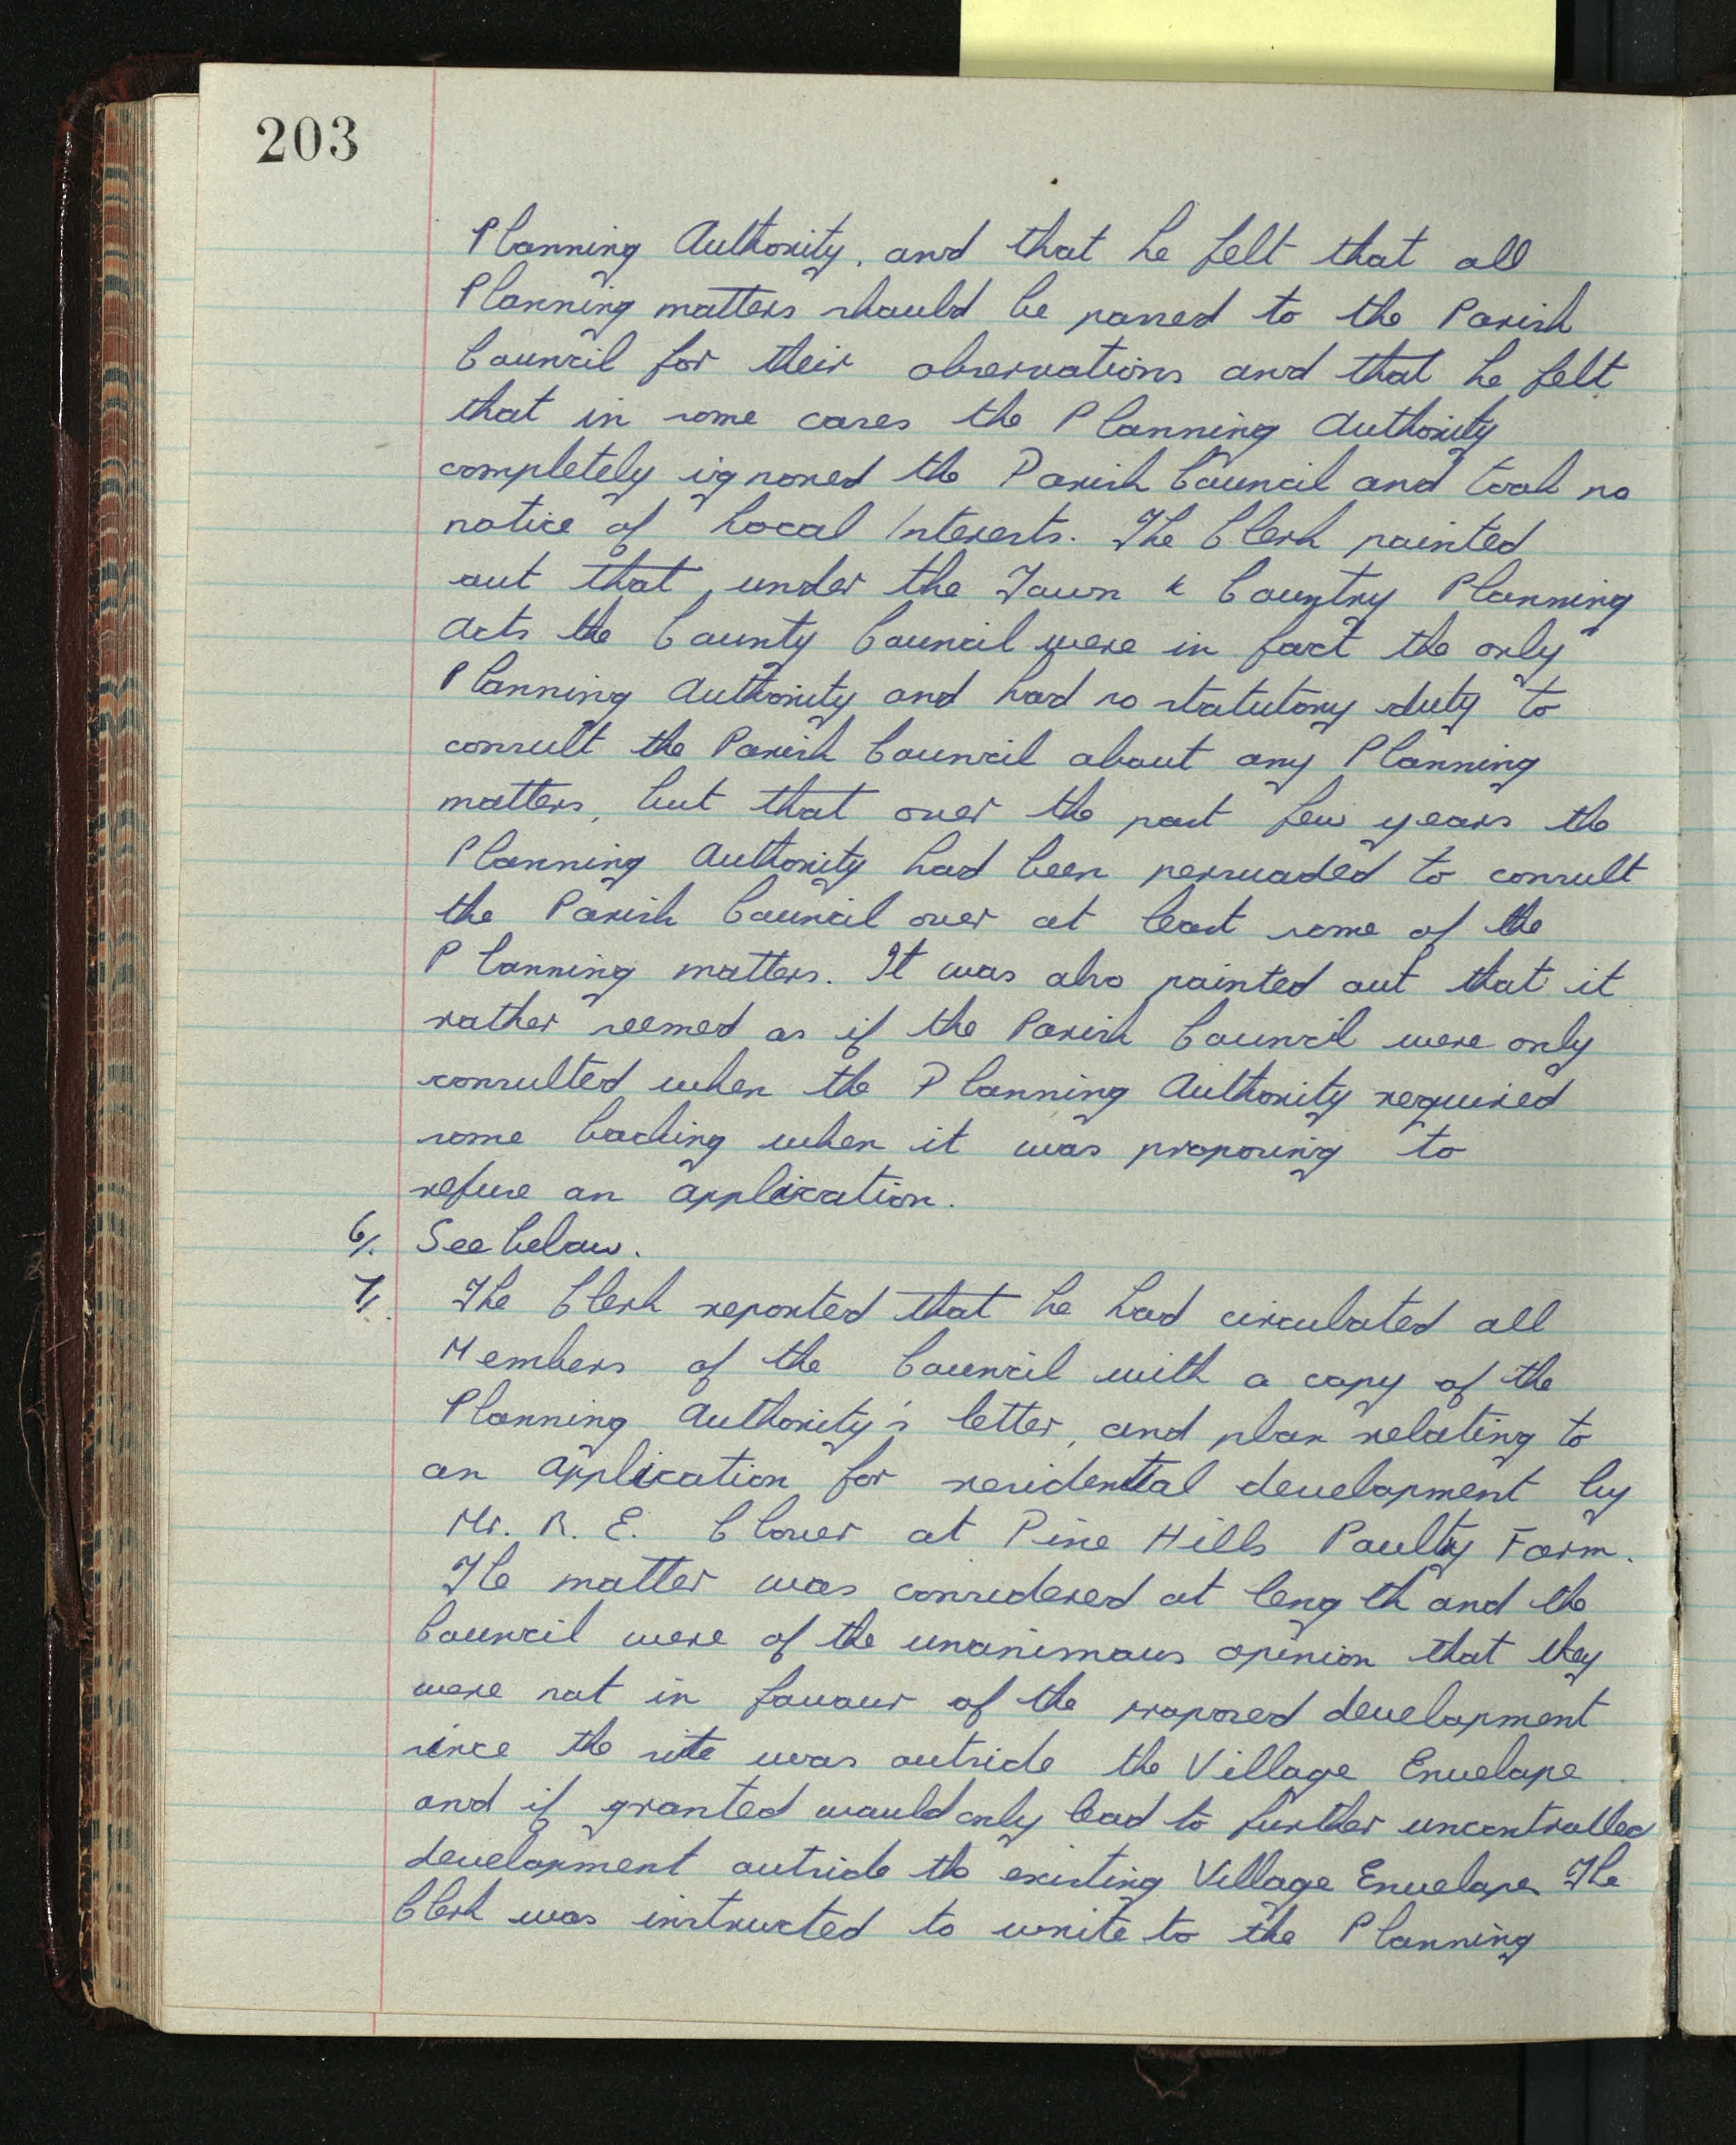 203
Planning Authority, and that he felt that all
Planning matters should be passed to the Parish
Council for their observations and that he felt
that in some cases the Planning Authority
completely ignored the Parish Council and took no
notice of Local Interests. The Clerk pointed
out that, under the Town & Country Planning
Acts the County Council were in fact the only
Planning Authority and had no statutory duty to
consult the Parish Council about any Planning
matters, but that over the past few years the
Planning Authority had been persuaded to consult
the Parish Council over at least some of the
Planning matters. It was also pointed out that it
rather seemed as if the Parish Council were only
consulted when the Planning Authority required
some backing when it was proposing to
refuse an application.
6/. See below.
7/. The Clerk reported that he had circulated all
Members of the Council with a copy of the
Planning Authority's letter, and plan relating to
an application for residential development by
Mr. R. E. Clover at Pine Hills Poultry Farm.
The matter was considered at length and the
Council were of the unanimous opinion that they
were not in favour of the proposed development
since the site was outside the Village Envelope
and if granted would only lead to further uncontrolled
development outside the existing Village Envelope. The
Clerk was instructed to write to the Planning